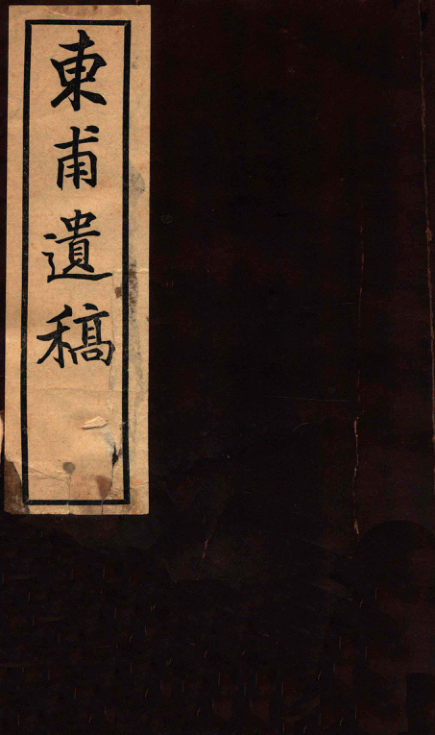 東甫遺稿